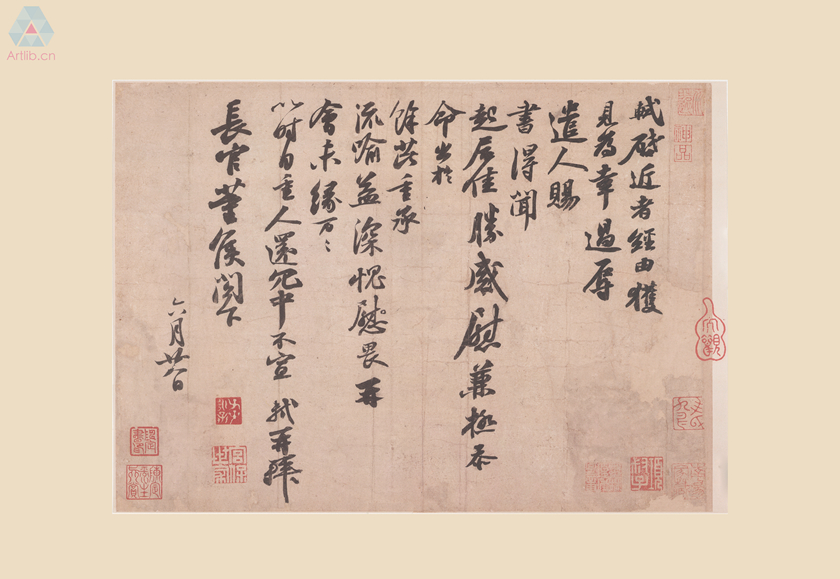 軾啓近者經由獲
見爲幸過辱
遣人賜
書得聞
起居佳勝感慰兼極忝
命出於
餘芘重承
流喻益深愧慰畏再
會未緣万〻
以時自重人還冗中不宣 軾再拜
長官董侯閣下
六月廿八日
Artlib.cn